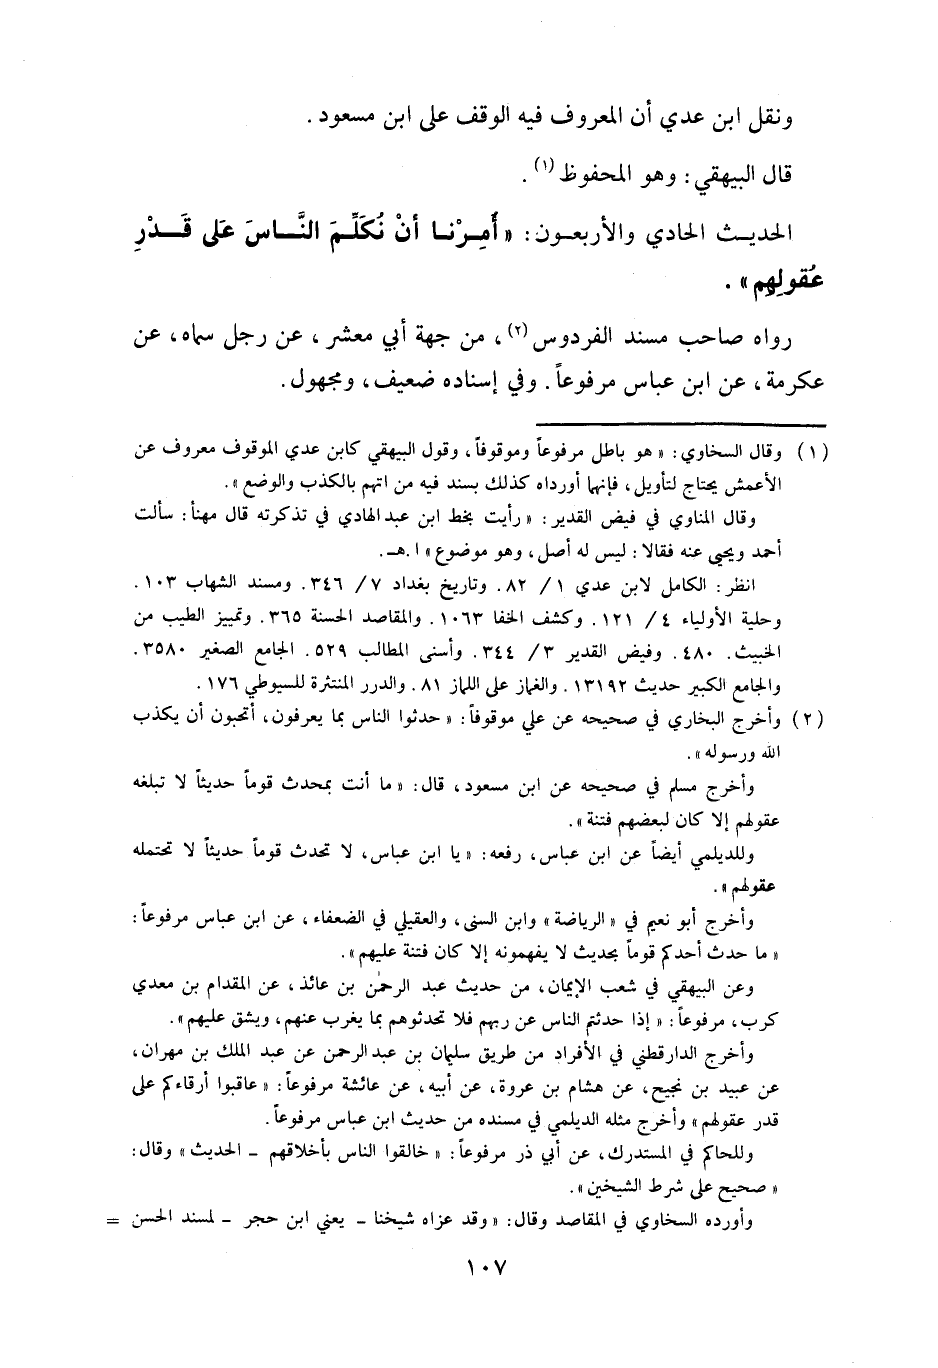 ونقل ابن عدي أن المعروف فيه الوقف على ابن مسعود .
قال البيهقي : وهو المحفوظ (١) .
الحديث الحادي والأربعون : « أُمِرْنا أنْ نُكَلِّمَ النَّاسَ عَلى قَدْرِ
عُقولِهِم » .
رواه صاحب مسند الفردوس (٢) ، من جهة أبي معشر ، عن رجل سماه ، عن
عكرمة ، عن ابن عباس مرفوعاً . وفي إسناده ضعيف ، ومجهول .
(١) وقال السخاوي : « هو باطل مرفوعاً وموقوفاً ، وقول البيهقي كابن عدي الموقوف معروف عن
الأعمش يحتاج لتأويل ، فإنهما أورداه كذلك بسند فيه من اتهم بالكذب والوضع » .
وقال المناوي في فيض القدير : « رأيت بخط ابن عبد الهادي في تذكرته قال مهنأ : سألت
أحمد ويحيى عنه فقالا : ليس له أصل ، وهو موضوع » ا . هـ .
انظر : الكامل لابن عدي ١ / ٨٢ . وتاريخ بغداد ٧ / ٣٤٦ . ومسند الشهاب ١٠٣ .
وحلية الأولياء ٤ / ١٢١ . وكشف الخفا ١٠٦٣ . والمقاصد الحسنة ٣٦٥ . وتمييز الطيب من
الخبيث . ٤٨٠ . وفيض القدير ٣ / ٣٤٤ . وأسنى المطالب ٥٢٩ . الجامع الصغير ٣٥٨٠ .
والجامع الكبير حديث ١٣١٩٢ . والغماز على اللماز ٨١ . والدرر المنتثرة للسيوطي ١٧٦ .
(٢) وأخرج البخاري في صحيحه عن علي موقوفاً : « حدثوا الناس بما يعرفون ، أتحبون أن يكذب
الله ورسوله » .
وأخرج مسلم في صحيحه عن ابن مسعود ، قال : « ما أنت بمحدث قوماً حديثاً لا تبلغه
عقولهم إلا كان لبعضهم فتنة » .
وللديلمي أيضاً عن ابن عباس ، رفعه : « يا ابن عباس ، لا تحدث قوماً حديثاً لا تحتمله
عقولهم » .
وأخرج أبو نعيم في « الرياضة » وابن السني ، والعقيلي في الضعفاء ، عن ابن عباس مرفوعاً :
« ما حدث أحدكم قوماً بحديث لا يفهمونه إلا كان فتنة عليهم » .
وعن البيهقي في شعب الإيمان ، من حديث عبد الرحمٰن بن عائذ ، عن المقدام بن معدي
كرب ، مرفوعاً : « إذا حدثتم الناس عن ربهم فلا تحدثوهم بما يغرب عنهم ، ويشق عليهم » .
وأخرج الدارقطني في الأفراد من طريق سليمان بن عبد الرحمن عن عبد الملك بن مهران ،
عن عبيد بن نجيح ، عن هشام بن عروة ، عن أبيه ، عن عائشة مرفوعاً : « عاقبوا أرقاءكم على
قدر عقولهم » وأخرج مثله الديلمي في مسنده من حديث ابن عباس مرفوعاً .
وللحاكم في المستدرك ، عن أبي ذر مرفوعاً : « خالقوا الناس بأخلاقهم – الحديث » وقال :
« صحيح على شرط الشيخين » .
وأورده السخاوي في المقاصد وقال : « وقد عزاه شيخنا – يعني ابن حجر – لمسند الحسن =
١٠٧